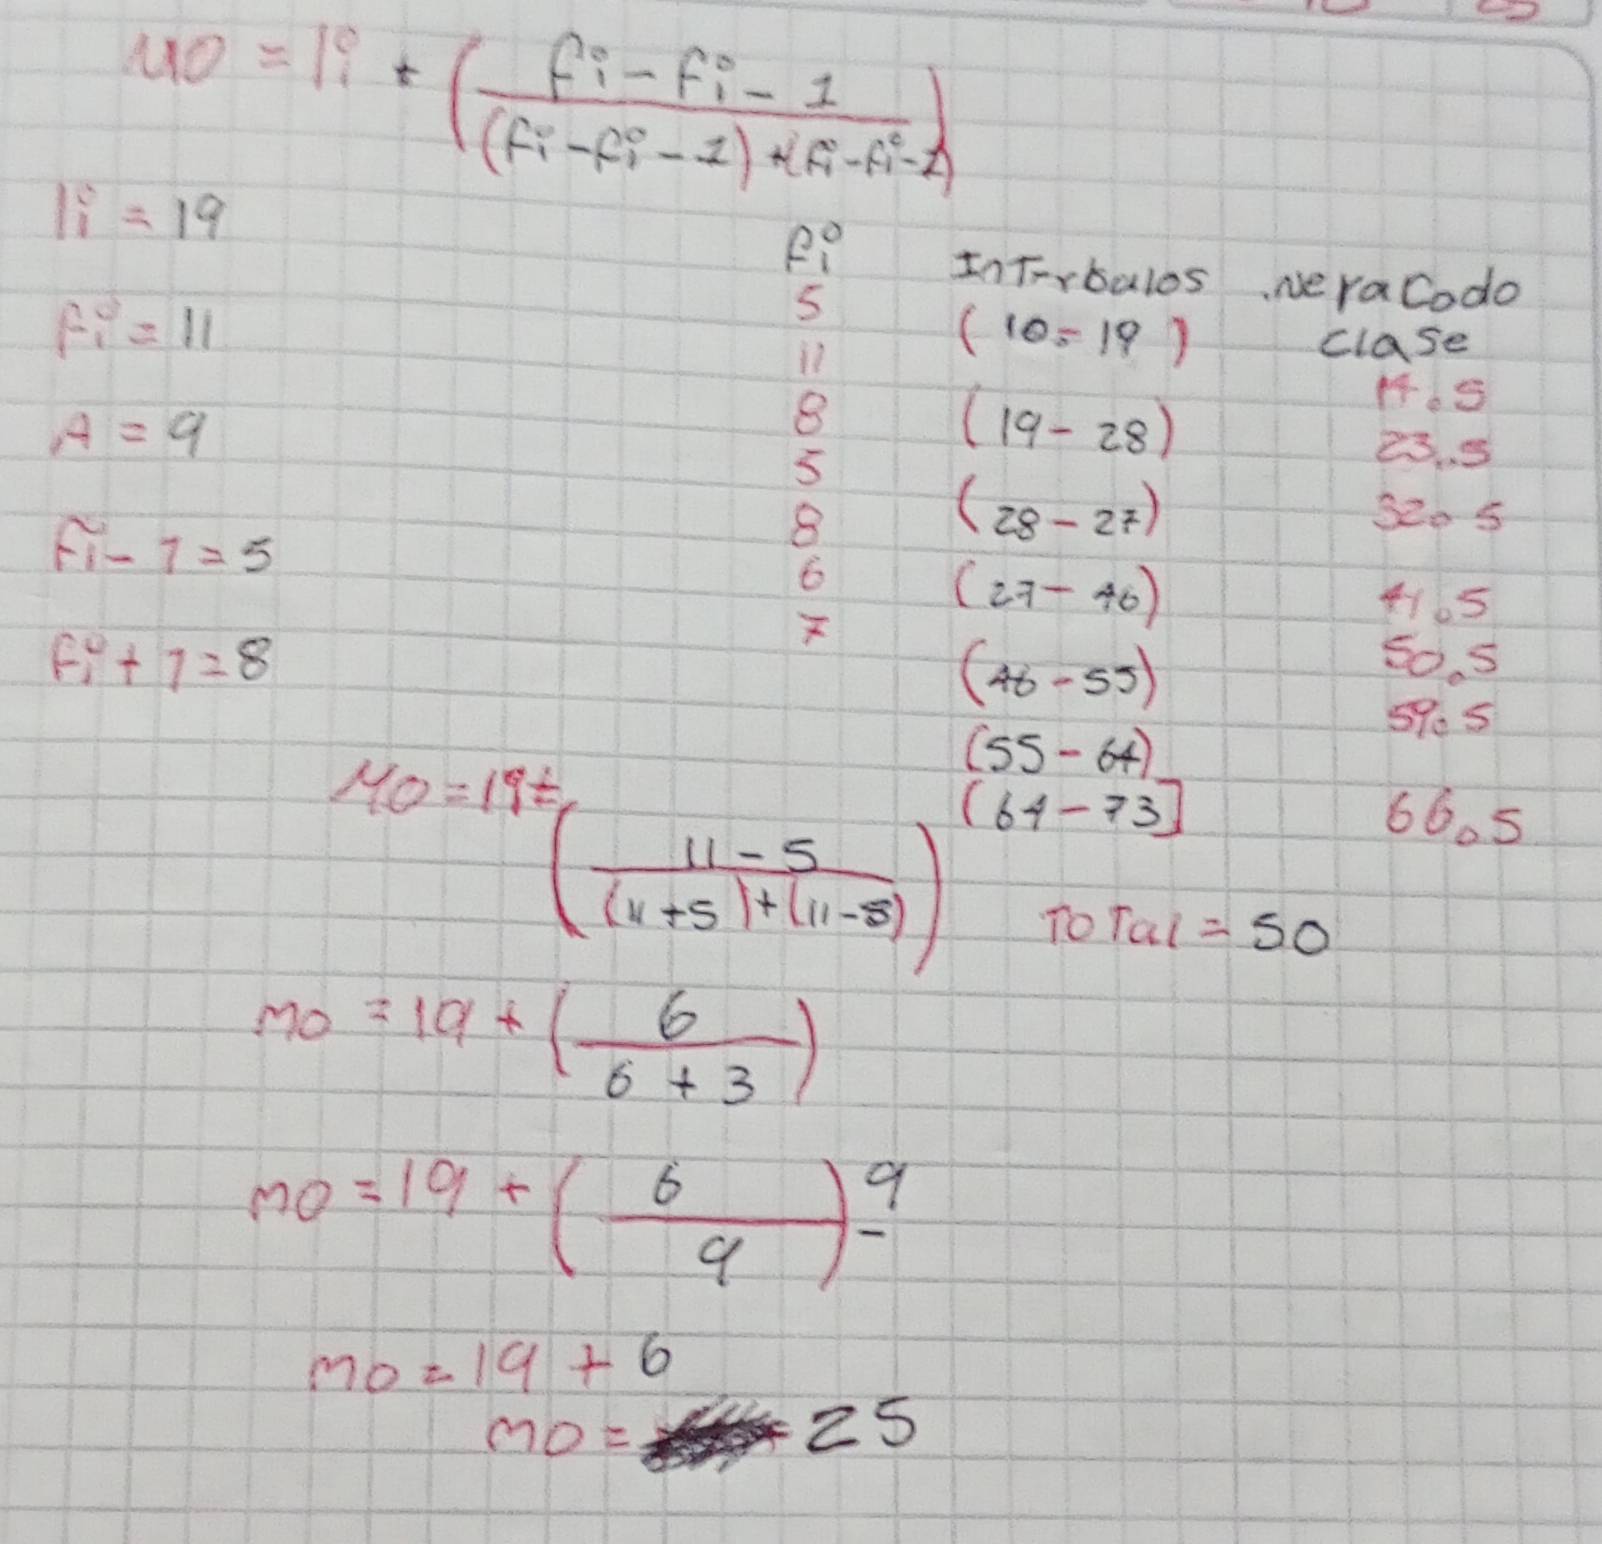 MO = li + ( fi - fi - 1 / (fi - fi - 1) + (fi - fi - 1) )
li = 19
fi = 11
A = 9
fi - 1 = 5
fi + 1 = 8
fi
5
11
8
5
8
6
7
Intrbalos
( 10 = 19 )
( 19 - 28 )
( 28 - 27 )
( 27 - 46 )
( 46 - 55 )
( 55 - 64 )
( 64 - 73 ]
clase
14.5
23..5
32.5
41.5
50.5
59.5
66.5
Total = 50
MO = 19 ± ( 11 - 5 / (11 + 5) + (11 - 8) )
mo = 19 + ( 6 / 6 + 3 )
mo = 19 + ( 6 / 9 ) 9 -
mo = 19 + 6
mo = 25